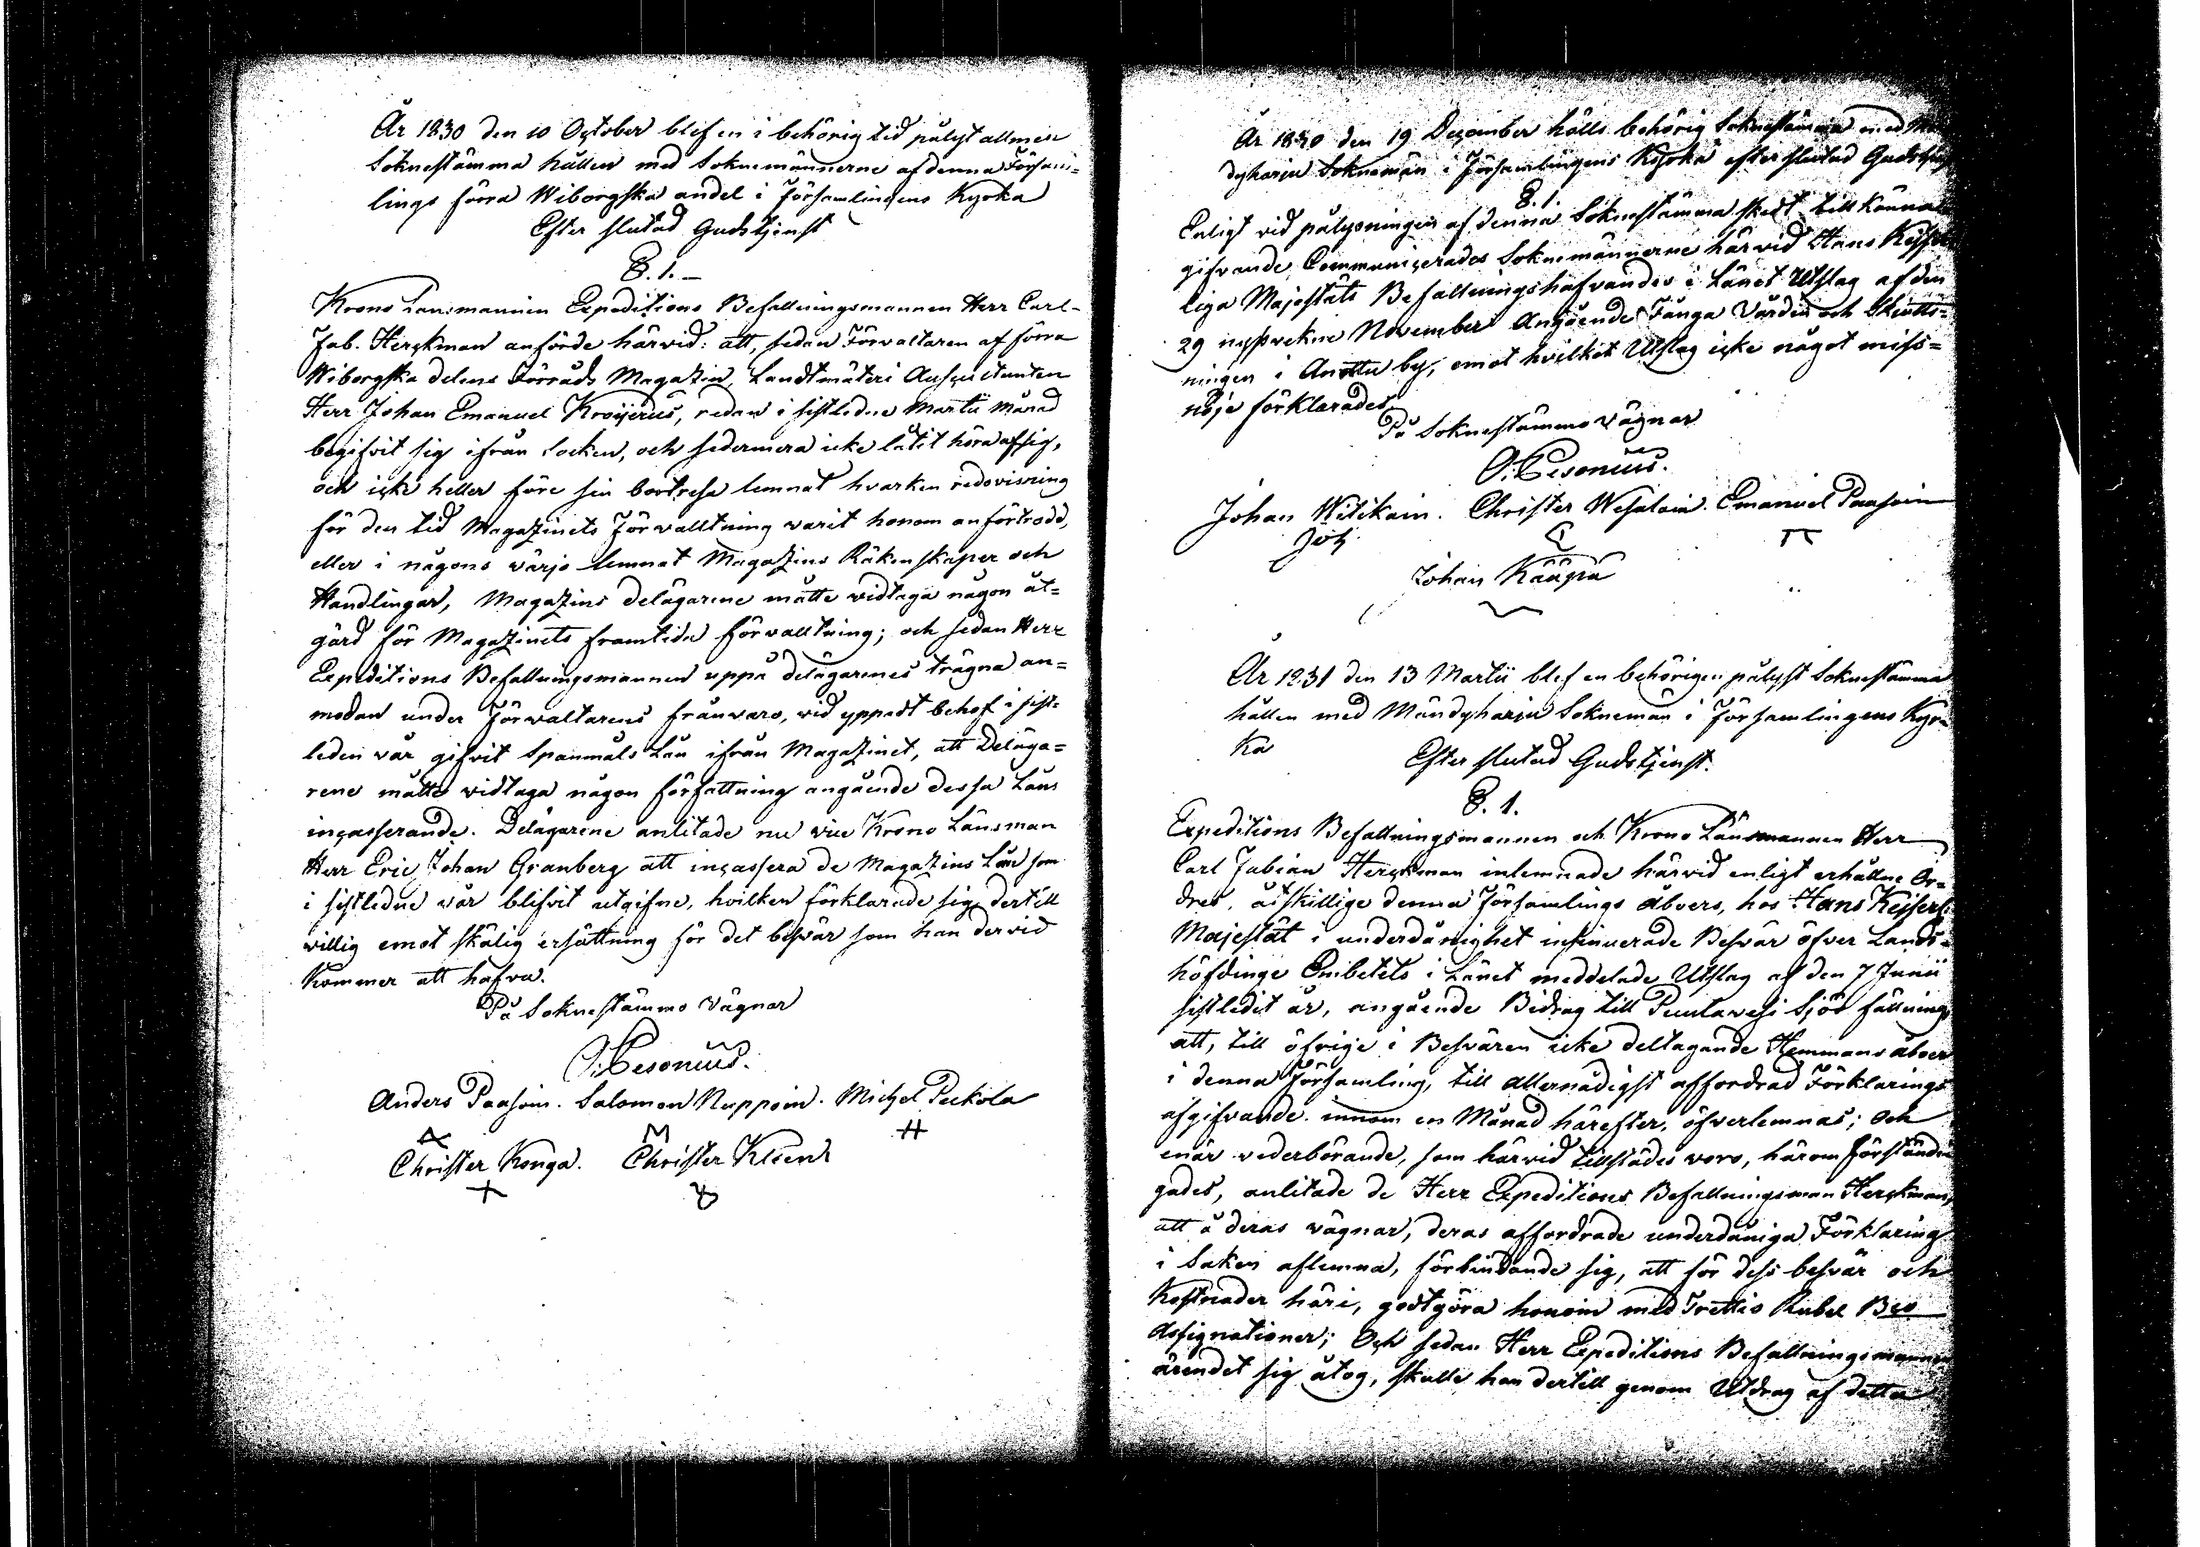 År 1830 den 10 October blef en i behörig tid pålyst allmen
Soknestämma hållen med Soknemännerne af denna Försam-
lings förra Wiborgska andel i Församlingens Kyrka
Efter slutad Gudstjenst
§. 1.
Krono Länsmannen Expeditions Befallningsmannen Herr Carl
Fab. Herckman anförde härvid: att, sedan Förvaltaren af förra
Wiborgska delens Förråds Magazin, Landtmäteri Auscultanten
Herr Johan Emanuel Kroijerus, redan i sistledne Martii månad
begifvit sig ifrån socken, och sedermera icke låtit höra af sig,
och icke heller före sin bortresa lemnat hvarken redovisning
för den tid Magazinets Förvalltning varit honom anförtrodd,
eller i någons värjo lemnat Magazins Räkenskaper och
Handlingar, Magazins delägarene måtte vidtaga någon åt=
gärd för Magazinets framtida förvalltning; och sedan Herr
Expeditions Befallningsmannen uppå delägarenes trägna an=
modan under Förvaltarens frånvaro, vid yppadt behof i sist=
leden vår gifvit Spanmåls Lån ifrån Magazinet, att Deläga=
rene måtte vidtaga någon författning angående dessa Låns
incasserande. Delägarene anlitade nu vice Krono Länsman
Herr Eric Johan Granberg att incassera de Magazins Lån som
i sistledne vår blifvit utgifne, hvilken förklarade sig dertill
villig emot skälig ersättning för det besvär som han dervid
kommer att hafva.
På Soknestämmo vägnar
O. Pesonius.
Anders Paasoin. Salomon Nuppoin. Michel Pukola
Christer Konga. Christer Kleen
År 1830 den 19 December hölls behörig Soknestämma med Män
dyharju Soknemän i Församlingens Kyrka efter slutad Gudstjenst
§. 1.
Enligt vid pålysningen af denna Soknestämma skedt till känna
gifvande Communicerades Soknemännerne härvid Hans Kejser
liga Majestäts Befallningshafvandes i Länet Utslag af den
29 nystvekne November Angående Fånga Vården och Skiutts=
ningen i Anttu by, emot hvilket Utslag icke något miss=
nöje förklarades
På Soknestämmo vägnar
O. Pesonius.
Johan Witikain. Christer Wesalain. Emanuel Paasoin
Johan Kääpä
År 1831 den 13 Martii blef en behörigen pålyst Soknestämma
hållen med Mändyharju Soknemän i Församlingens Kyr=
ka
Efter slutad Gudstjenst.
§. 1.
Expeditions Befallningsmannen och Krono Länsmannen Herr
Carl Fabian Herckman inlemnade härvid enligt erhållne Or=
dres, åtskillige denna Församlings åboers, hos Hans Kejserl.
Majestät i underdånighet insinuerade Besvär öfver Lands=
höfdinge Embetets i Länet meddelade Utslag af den 7 Junii
sistledit år, angående Bidrag till Puulavesi Sjös fällning,
att, till öfrige i Besvären icke deltagande Hemmans åboer
i denna Församling, till allernådigst affordrad Förklarings
afgifvande innom en Månad härefter, öfverlemnas; och
enär vederbörande, som härvid tillstädes voro, härom förständi
gades, anlitade de Herr Expeditions Befallningsman Herckman,
att å deras vägnar, deras affordrade underdåniga Förklaring
i Saken aflemna, förbindande sig, att för dess besvär och
Kostnader häri, godtgöra honom med Trettio Rubel Bco
Assignationer; Och sedan Herr Expeditions Befallningsmannen
ärendet sig åtog, skulle han dertill genom Utdrag af detta